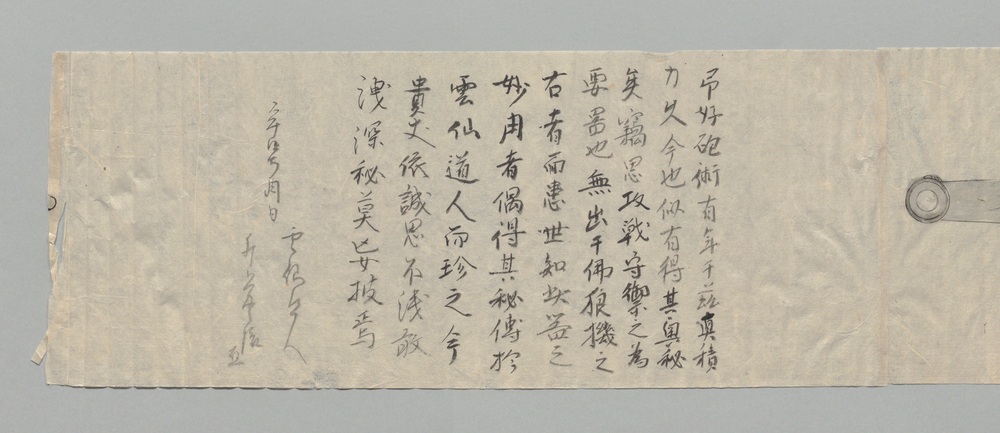 予好砲術有年于茲真積
力久今也似有得其奥秘
矣竊思攻戦守禦之為
要器也無出于佛狼機之
右者而患世知此器之
妙用者偶得其秘傳於
雲仙道人而珍之今
貴丈依誠思不浅敢
洩深秘莫妄披焉
月日